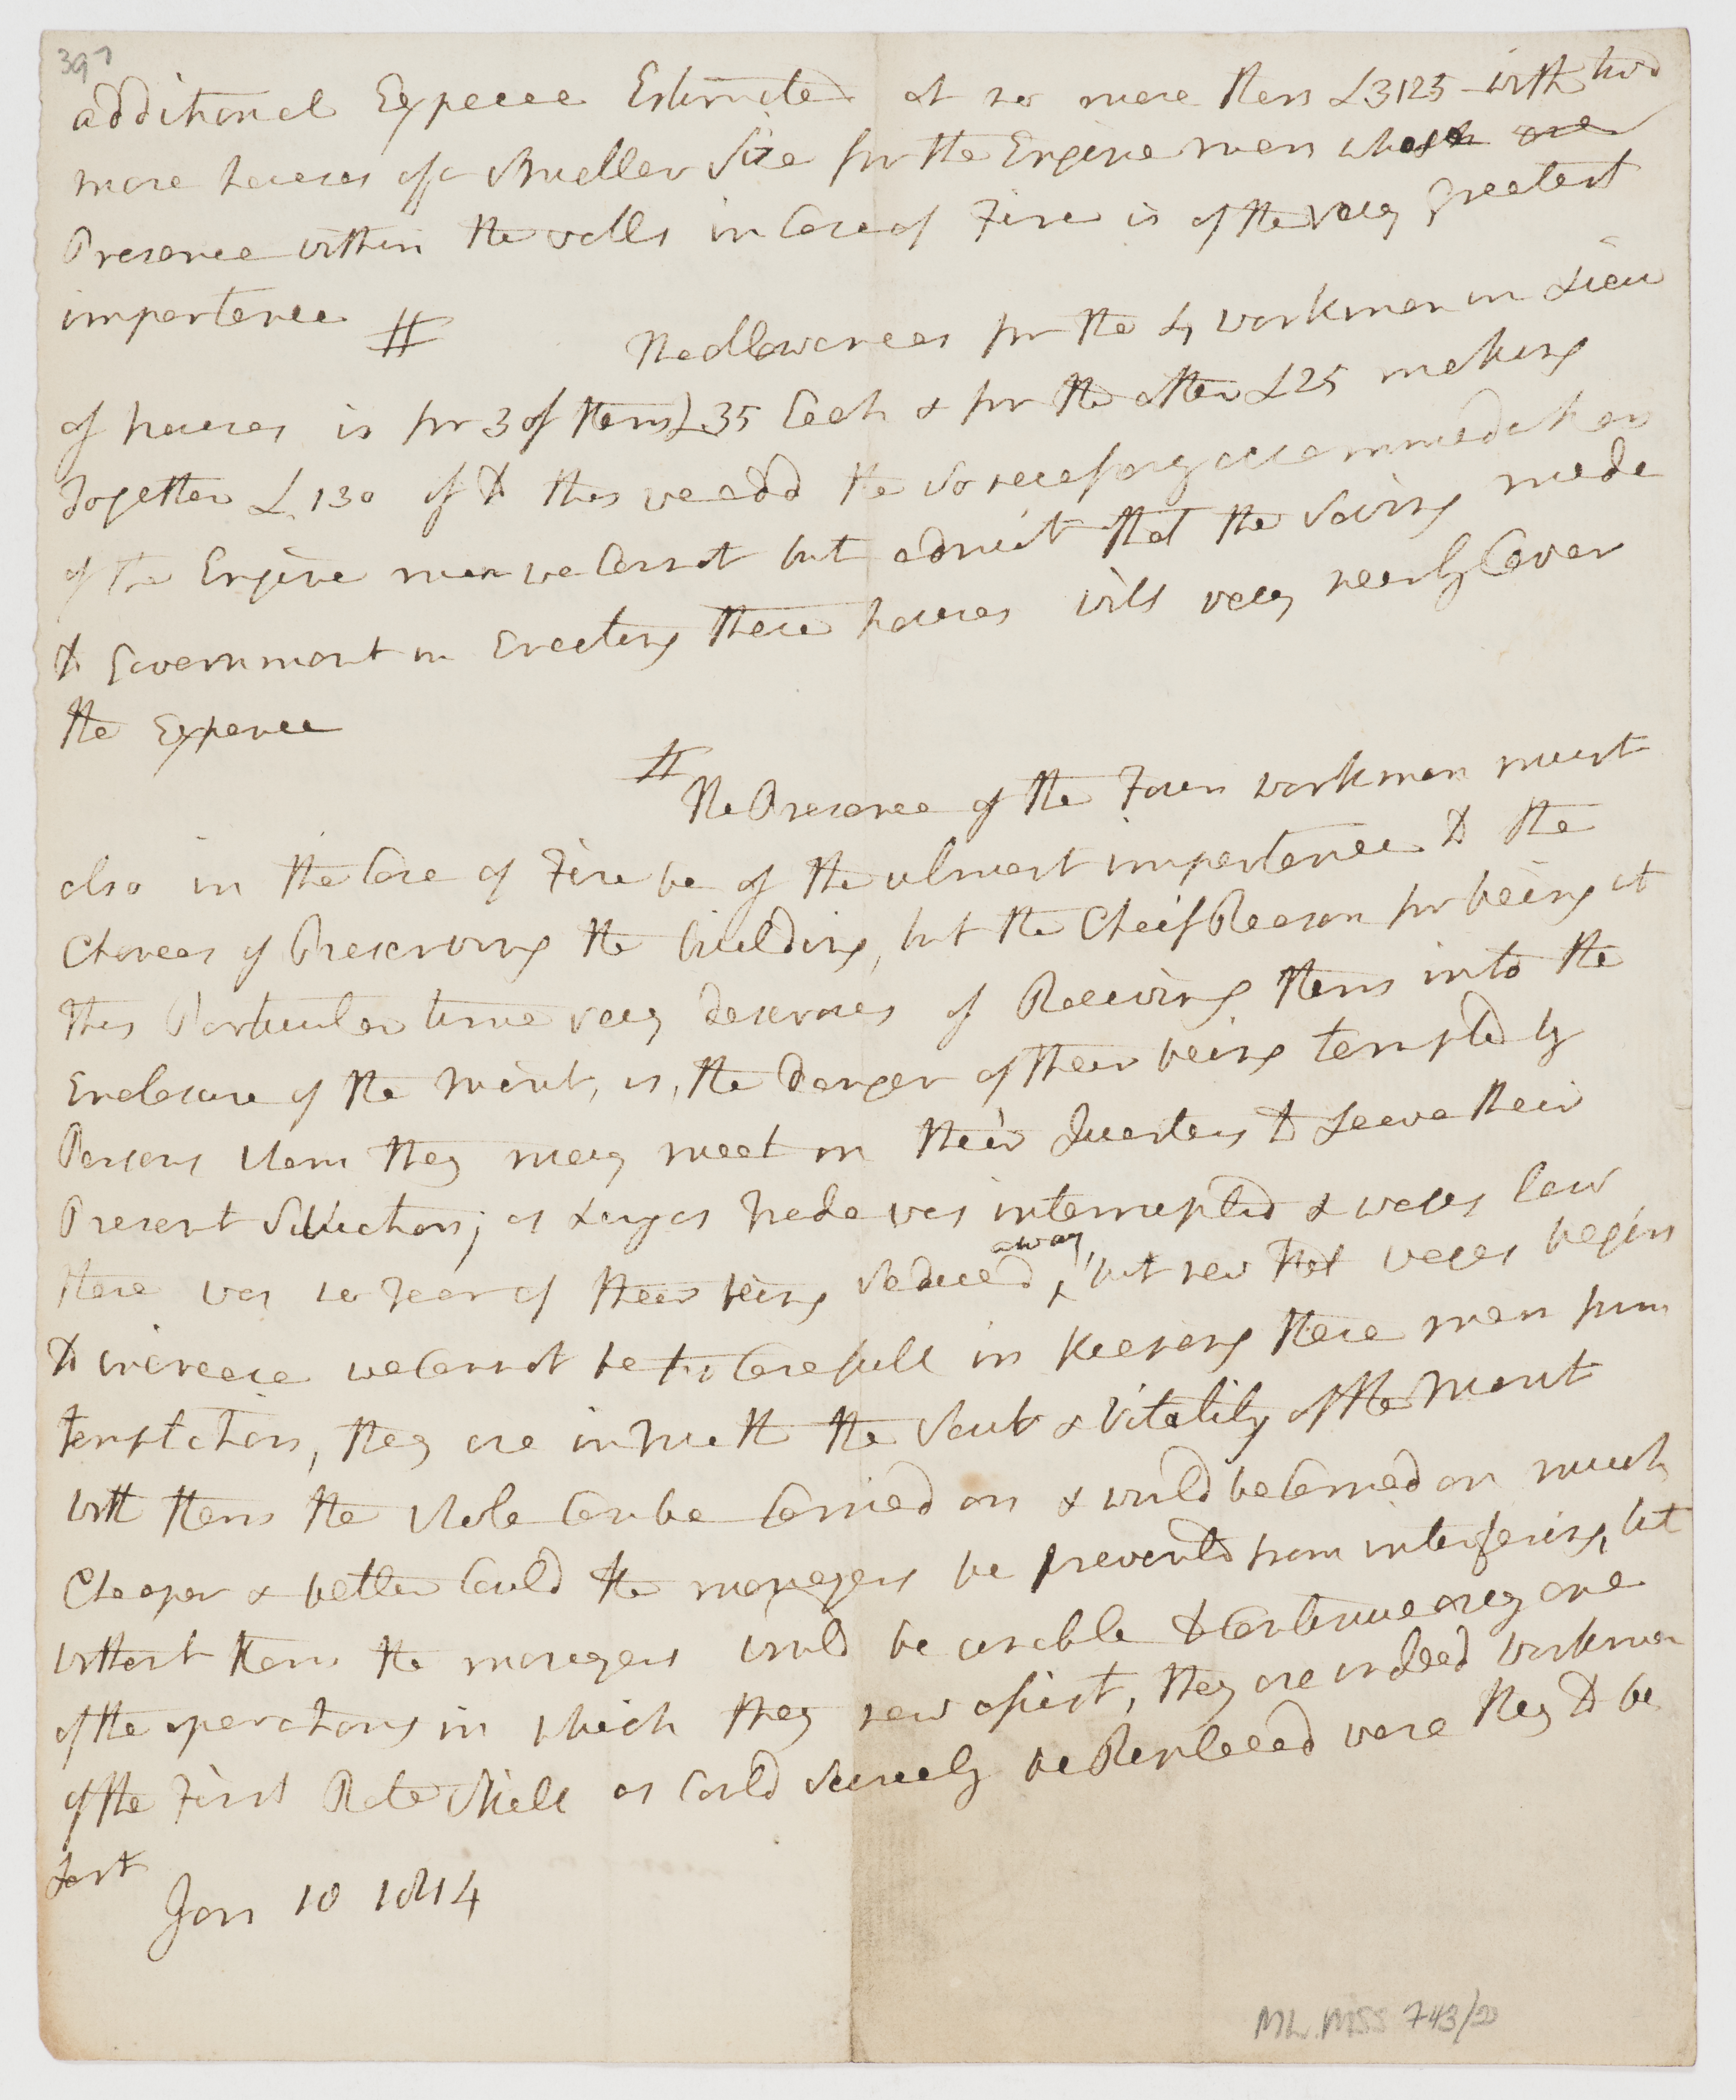 397
additional Expence Estimated at no more than £3125 with two
more houses of a Smaller Size for the Engine men whose are
Presence within the walls in Case of Fire is of the very greatest
importance #
The allowances for the 4 workmen in Lieu
of houses is for 3 of them £35 Each & for the other £25 making
together £130 if to this we add the so necessary accommodation
of the Engine men we Cannot but admit that the Saving made
to Government in Erecting these houses will very nearly Cover
the Expence
# The Presence of the Four workmen must
also in the Case of Fire be of the utmost importance to the
Chances of Preserving the building, but the Cheif Reason for being at
this Particular time very desirous of Receiving them into the
Enclosure of the Mint, is, the danger of their being tempted by
Persons whom they may meet in their Quarters to Leave their
Present Situation; as Long as trade was interrupted & wages low
there was no Fear of their being Seduced away, but now that wages begin
to increase we Cannot be too Carefull in Keeping these men from
temptation, they are in truth the Soul & Vitality of the Mint
with them the whole Can be Carried on & would be Carried on much
Cheaper & better Could the managers be prevented from interfering, but
without them the managers would be unable to Continue any one
of the operations in which they now assist, they are indeed workmen
of the First Rate Skill as Could Scarcely be Replaced were they to be
Lost
Jan 10 1814
ML. MSS 743/20